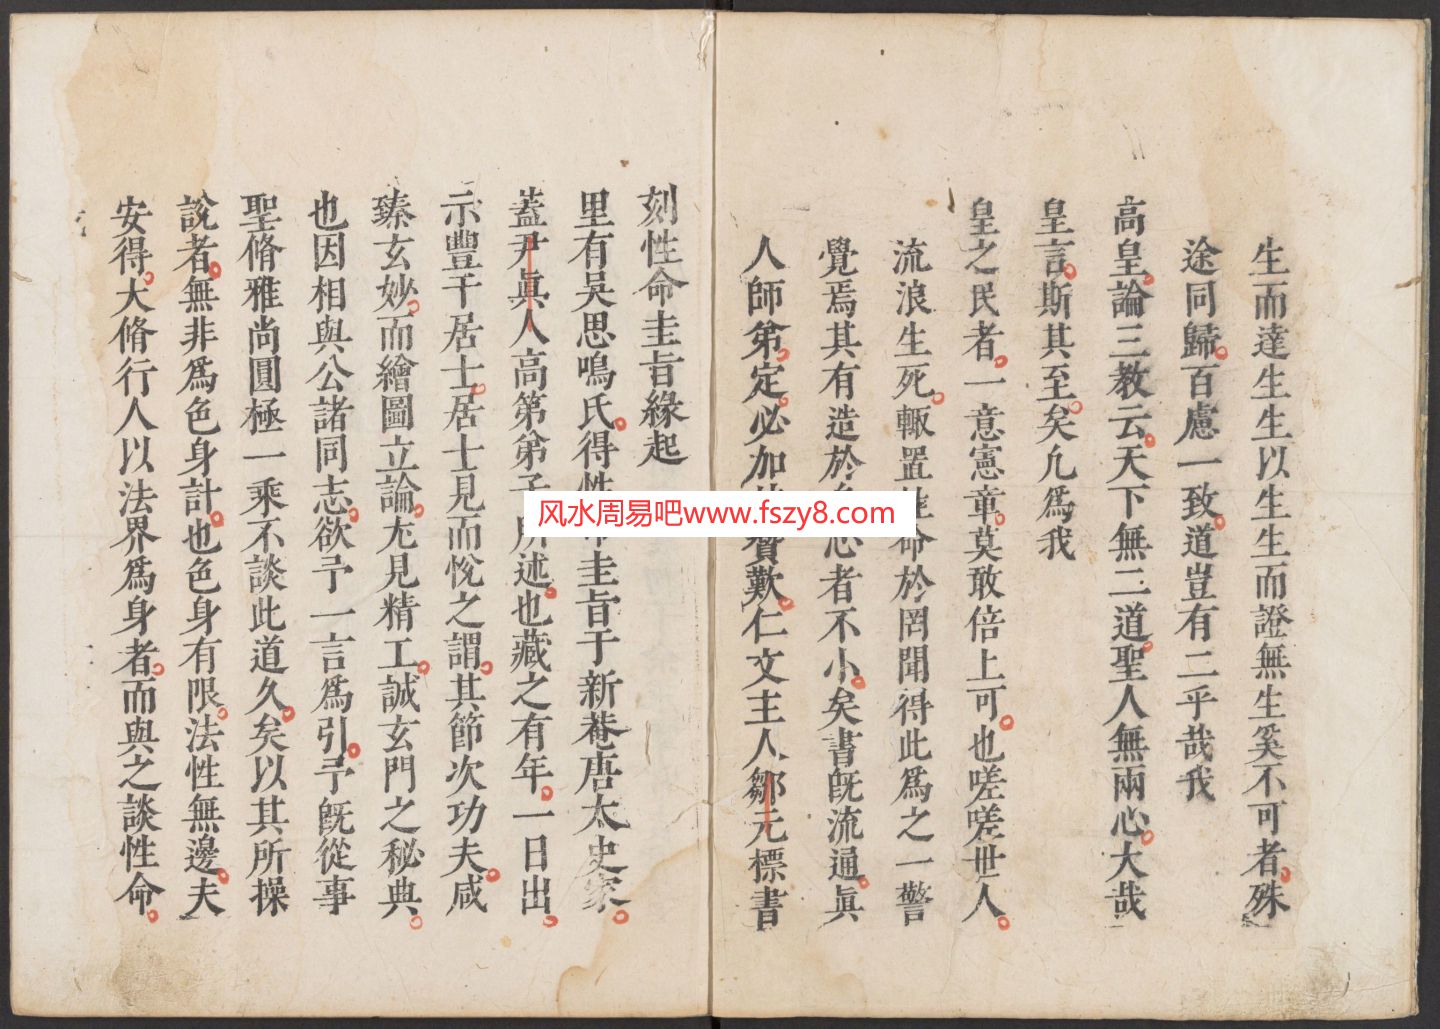 生而達生生以生生而證無生奚不可者殊
途同歸百慮一致道豈有二乎哉我
高皇論三教云天下無二道聖人無兩心大哉
皇言斯其至矣允為我
皇之民者一意憲章莫敢倍上可也嗟嗟世人
流浪生死輙置性命於罔聞得此為之一警
覺焉其有造於 者不小矣書旣流通眞
人師弟定必加 贊歎仁文主人鄒元標書
刻性命圭旨緣起
里有吳思鳴氏得性命圭旨于新菴唐太史家
蓋尹眞人高第弟子所述也藏之有年一日出
示豐干居士居士見而悅之謂其節次功夫咸
臻玄妙而繪圖立論尤見精工誠玄門之秘典
也因相與公諸同志欲予一言爲引予旣從事
聖脩雅尚圓極一乘不談此道久矣以其所操
說者無非爲色身計也色身有限法性無邊夫
安得大脩行人以法界爲身者而與之談性命
风水周易吧www.fszy8.com